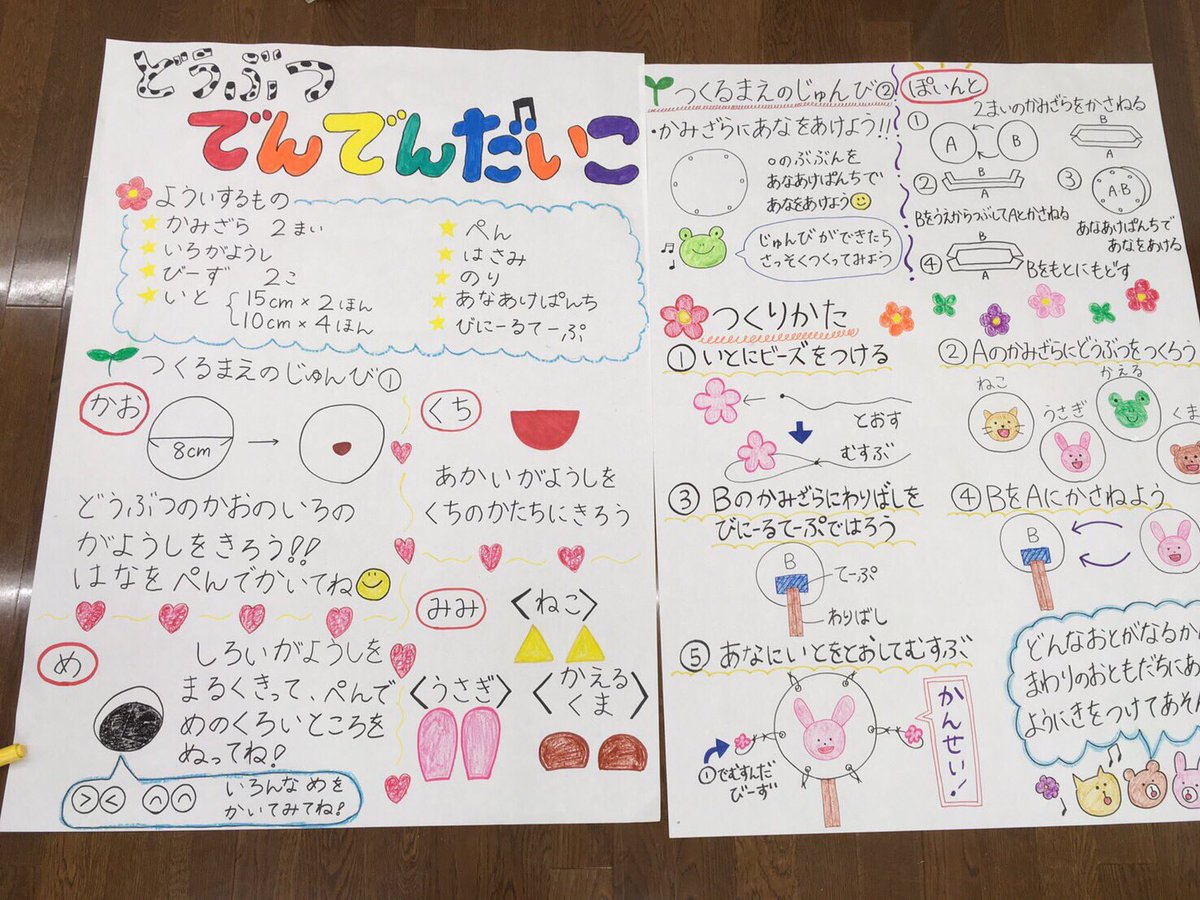 どうぶつ
でんでんだいこ
よういするもの
かみざら 2まい
いろがようし
びーず 2こ
いと 15cm×2ほん
10cm×4ほん
ぺん
はさみ
のり
あなあけぱんち
びにーるてーぷ
つくるまえのじゅんび①
かお
8cm
どうぶつのかおのいろの
がようしをきろう!!
はなをぺんでかいてね
くち
あかいがようしを
くちのかたちにきろう
め
しろいがようしを
まるくきって、ぺんで
めのくろいところを
ぬってね!
いろんなめを
かいてみてね!
みみ
〈ねこ〉
〈うさぎ〉
〈かえる
くま〉
つくるまえのじゅんび②
・かみざらにあなをあけよう!!
○のぶぶんを
あなあけぱんちで
あなをあけよう
じゅんびができたら
さっそくつくってみよう
ぽいんと
2まいのかみざらをかさねる
①
A
B
B
A
②
A
BをうえからつぶしてAとかさねる
③
A・B
あなあけぱんちで
あなをあける
④
B
A
Bをもとにもどす
つくりかた
①いとにビーズをつける
とおす
むすぶ
②Aのかみざらにどうぶつをつくろう
ねこ
うさぎ
かえる
くま
③Bのかみざらにわりばしを
びにーるてーぷではろう
B
てーぷ
わりばし
④BをAにかさねよう
B
⑤あなにいとをとおしてむすぶ
①でむすんだ
びーず
かんせい!
どんなおとがなるか
まわりのおともだちにあ
ようにきをつけてあそ